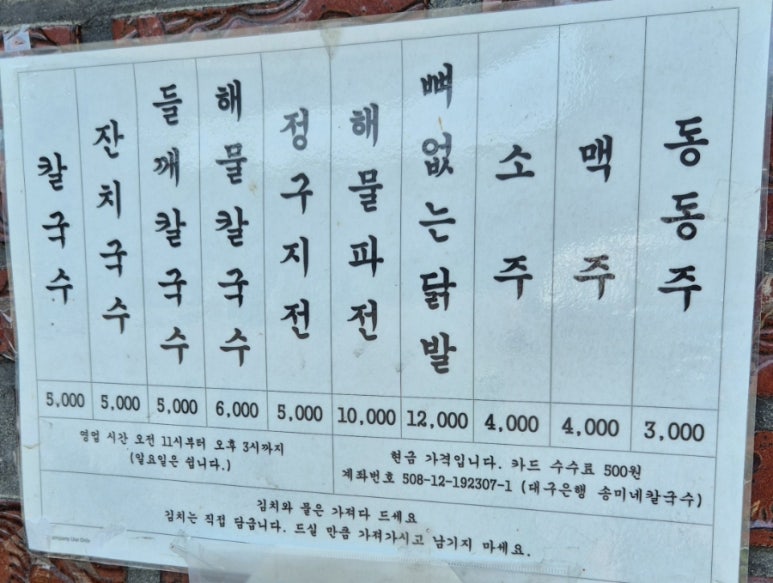 칼국수
잔치국수
들깨칼국수
해물칼국수
정구지전
해물파전
뼈없는닭발
소주
맥주
동동주
5,000 5,000 5,000 6,000 5,000 10,000 12,000 4,000 4,000 3,000
영업 시간 오전 11시부터 오후 3시까지
(일요일은 쉽니다.)
현금 가격입니다. 카드 수수료 500원
계좌번호 508-12-192307-1 (대구은행 송미네칼국수)
김치와 물은 가져다 드세요
김치는 직접 담급니다. 드실 만큼 가져가시고 남기지 마세요.